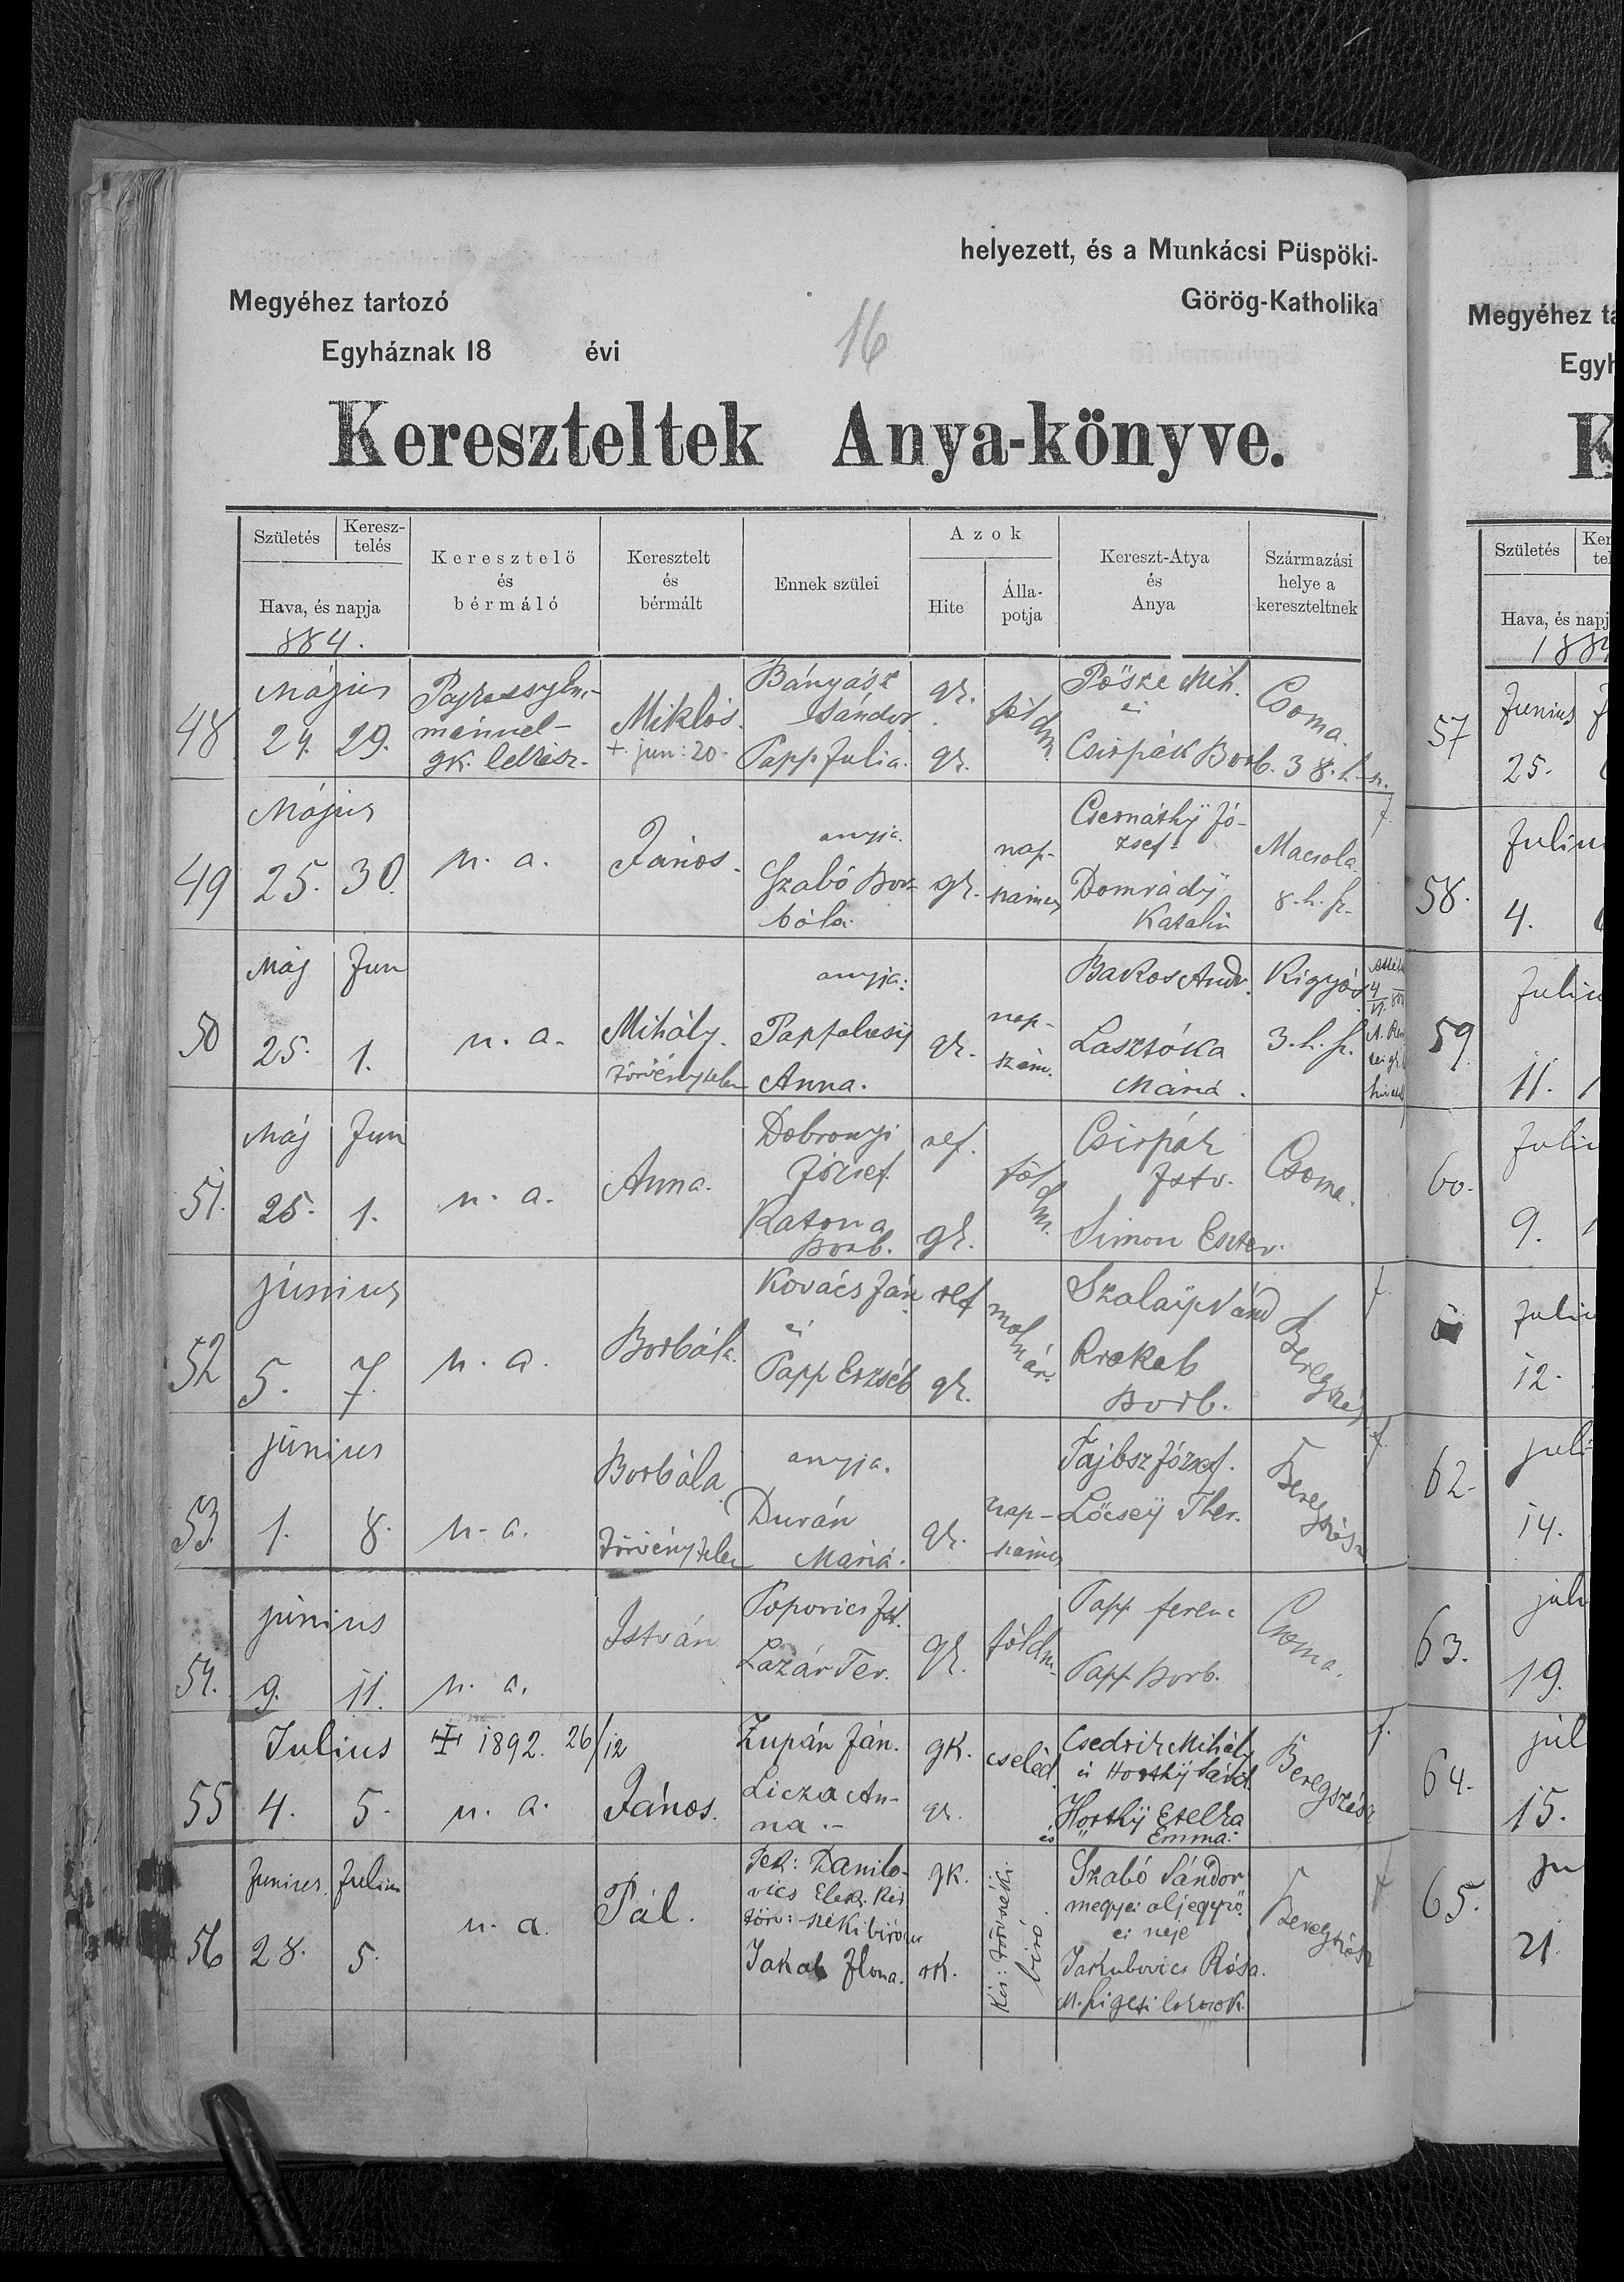 helyezett, és a Munkácsi Püspöki-
Megyéhez tartozó Görög-Katholika
Egyháznak 18 évi
16
Kereszteltek Anya-könyve.
Születés Keresz-telés
Hava, és napja
884.
Keresztelő és bérmáló
Keresztelt és bérmált
Ennek szülei
Azok
Hite
Álla-potja
Kereszt-Atya és Anya
Származási helye a kereszteltnek
48 Május 24. 29. gk. lelkész. Miklós. +. jun: 20. Bányász Sándor. Papp Julia. gk. gk. földm. Pősze Mih. és Csirpák Borb. Csoma. 38. h. sz.
49 Május 25. 30. u. a. János. anyja. Szabó Bor-bála. gk. nap-számos Csernáthÿ Jó-zsef. Domrádÿ Katalin Macsola. 8. h. sz. f.
50 Máj Jun 25. 1. u. a. Mihály. törvénytelen anyja: Anna. gk. nap-szám. Bakos Andr. Lasztóka Mária. Kigyós 3. h. sz.
51. Máj Jun 25. 1. u. a. Anna. Dobronyi József. Katona Borb. ref. gk. földm. Csirpák Istv. Simon Eszter. Csoma.
52 június 5. 7. u. a. Borbála. Kovács Ján és Papp Erzséb ref gk. molnár. Szalaÿ Nánd Borb. Beregszász f.
53. június 1. 8. u. a. Borbála. törvénytelen anyja. Durán Mária. gk. nap-számos Tajbsz József. Lőcseÿ Ther. Beregszász f.
54. június 9. 11. u. a. István Popovics Ist. Lazár Ter. gk. földm. Papp ferenc Papp Borb. Csoma.
55 Julius 4. 5. ‡ 1892. 26/12 u. a. János. Zupán Ján. Licza An-na.- gk. gk. cseléd. Csedrik Mihály és Horthÿ Sánd. Horthÿ Etelka és " Emma. Beregszász f.
56 Junius. Julius 28. 5. u. a. Pál. Tek: Danilo-vics Elek. Kir törv: széki biró és Jakab Ilona. gk. rk. Kir: törvszéki: biró. Szabó Sándor megyei aljegyző. és neje Jakubovics Rósa. M. szigeti lakosok. Beregszász f
Megyéhez ta
Egyh
K
Születés Ker tel
Hava, és napj
1884
57 Junius 25.
58. Juliu 4.
59 Juliu 11. 1
60. Juliu 9. 1
Juliu 12.
62. juli 14.
63. juli 19.
64. jul 15.
65. ju 21.